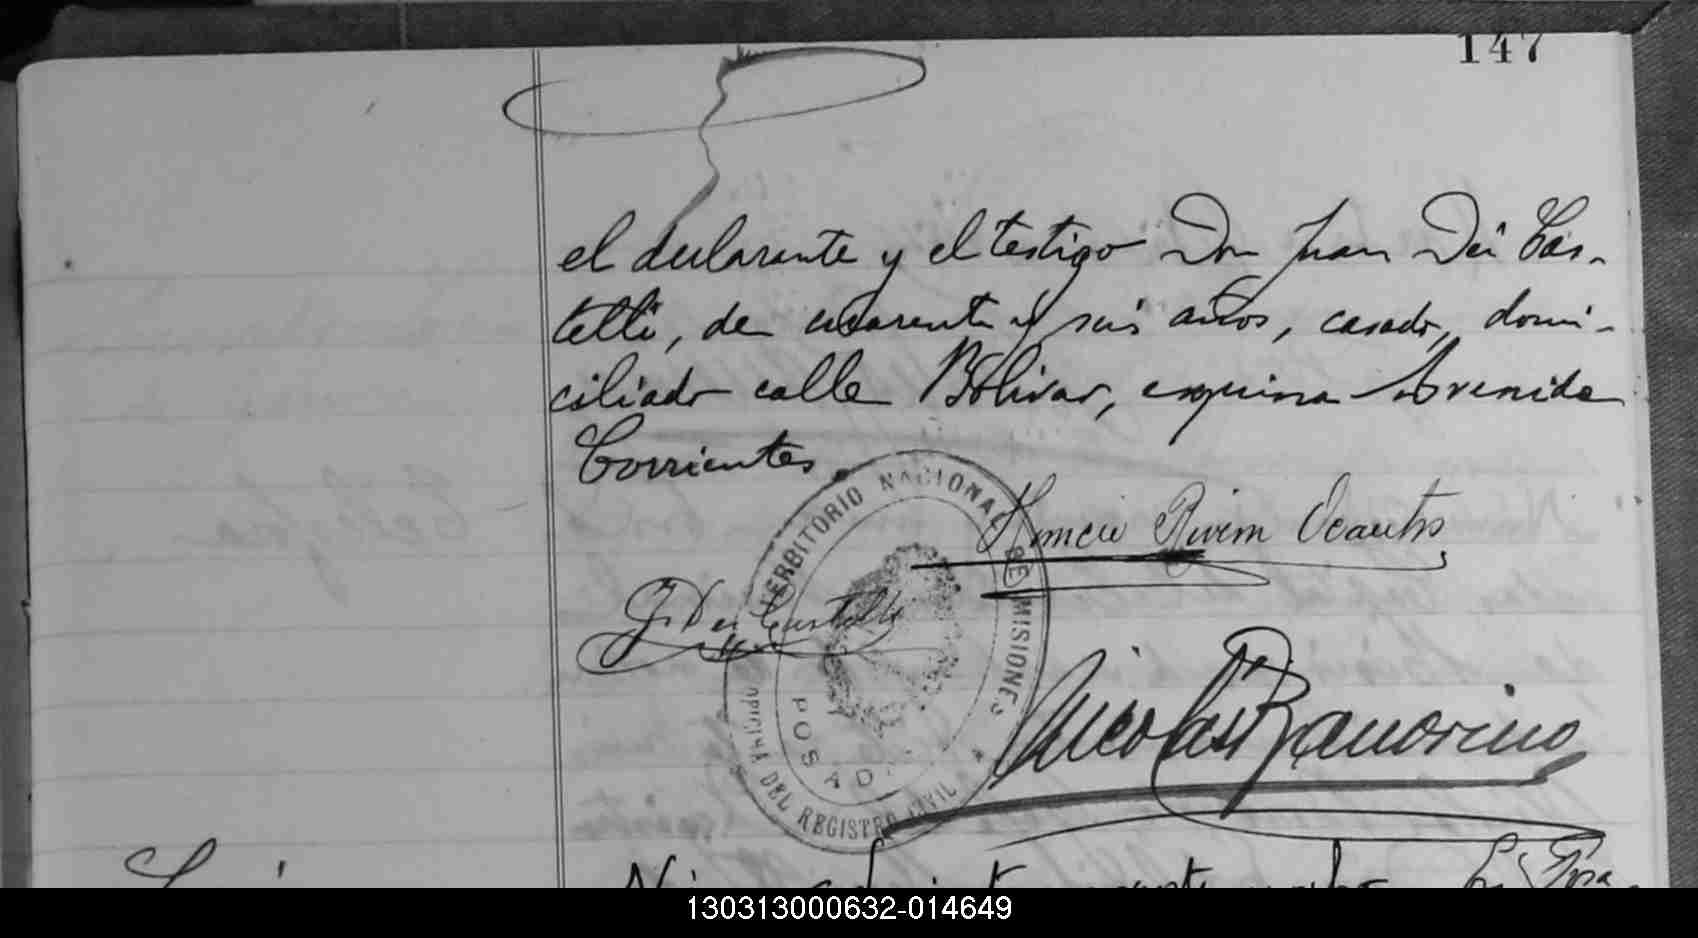 147
el declarante y el testigo Don Juan Dei Cas-
telli, de cuarenta y seis años, casado, domi-
ciliado calle Bolivar, esquina Avenida
Corrientes
TERRITORIO NACIONAL DE MISIONES
Rivera Ocantos
J. Dei Castelli
POSAD
OFICINA DEL REGISTRO CIVIL
Nicolas Zamorino
130313000632-014649